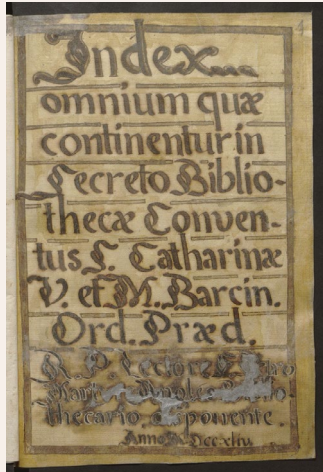 Index
omnium quæ
continentur in
Secreto Biblio-
thecæ Conven-
tus S. Catharinæ
V. et M. Barcin.
Ord. Præd.
R. P. Lectore
thecario, ponente.
Anno
4